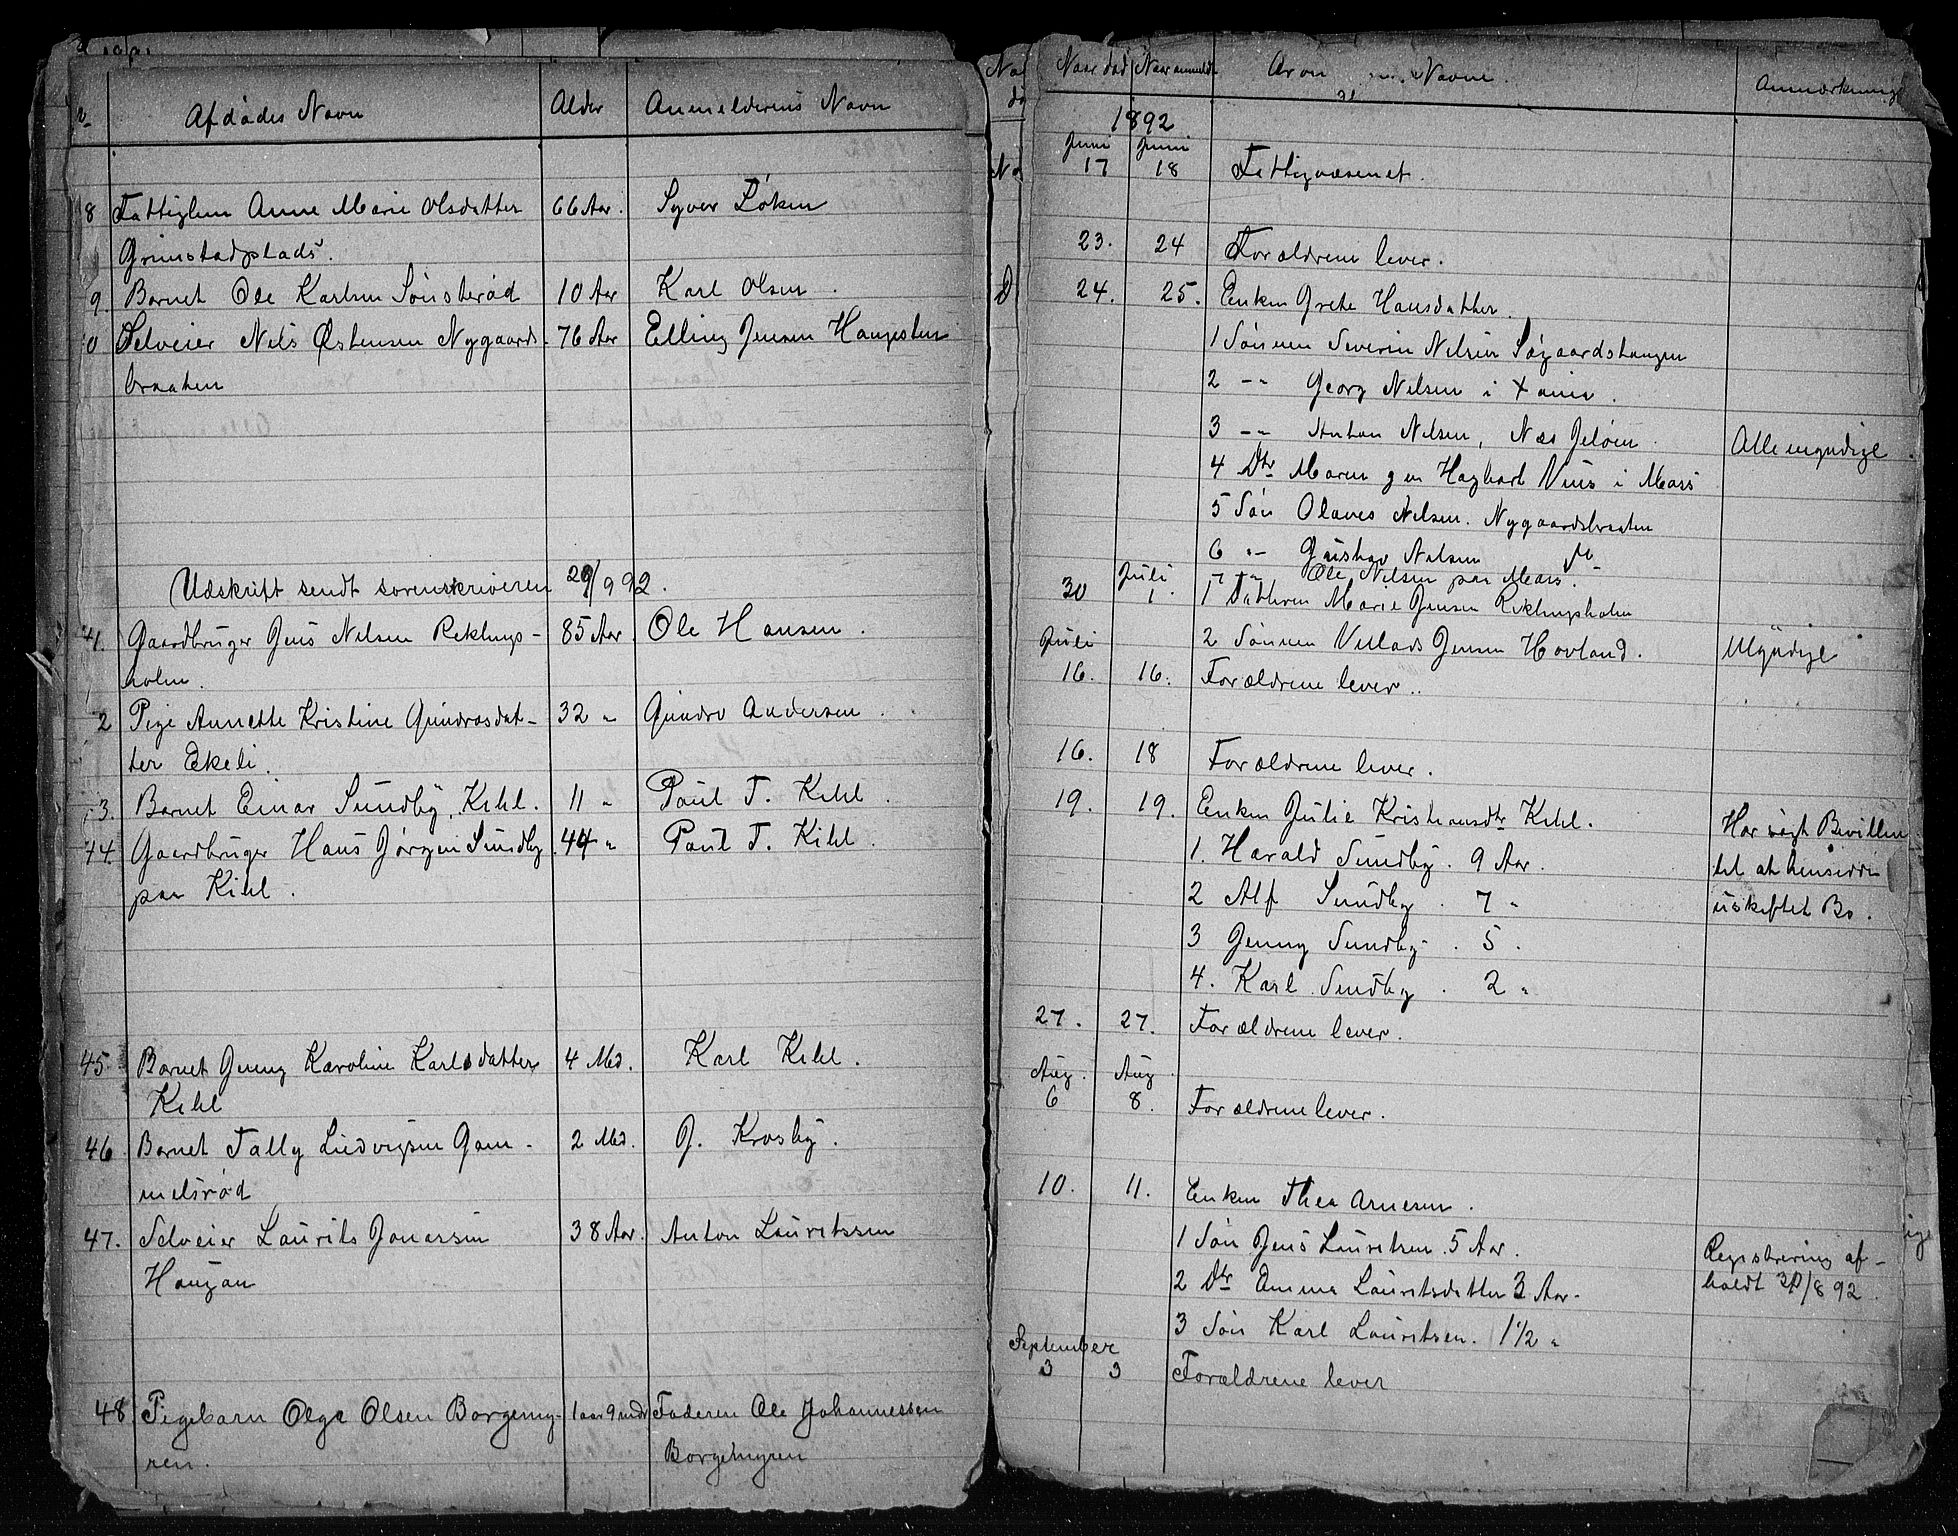 Afdødes Navn
Alder
Anmelderens Navn
8 Fattiglem Anne Marie Olsdatter 66 Aar. Syver Løken
Grimstadplads.
9. Barnet Ole Karlsen Sønsterød 10 Aar Karl Olsen.
0 Selveier Nils Østensen Nygaards- 76 Aar Elling Jensen Haugesten
braaten
Udskrift sendt sorenskriveren 29/9 92.
41. Gaardbruger Jens Nilsen Reklings- 85 Aar. Ole Hansen.
holm.
2 Pige Annette Kristine Gundrosdat- 32 " Gundro Andersen.
ter Ekeli.
3. Barnet Einar Sundby, Kihl. 11 " Paul T. Kihl.
44 Gaardbruger Hans Jørgen Sundby 44 " Paul T. Kihl.
paa Kihl.
45. Barnet Jenny Karoline Karlsdatter 4 Md. Karl Kihl.
Kihl
46. Barnet Tally Ludvigsen Gam- 2 Md. J. Krosby.
melsrød
47. Selveier Laurits Jonassen 38 Aar. Anton Lauritssen
Haugan
48 Pigebarn Olga Olsen Borgemy- 1 aar 9 mdr Faderen Ole Johannessen
ren. Borgemyren
Naar død
Naar anmeldt
Navne.
Anmærkning
1892
Juni Juni
17 18 Fattigvæsenet.
23. 24 Forældrene lever.
24. 25. Enken Grete Hansdatter.
1 Sønnen Severin Nilsen Søgaardshaugen
2 -"- Georg Nilsen i Xania.
3 -"- Anton Nilsen, Næs Jeløen. Alle myndige.
4 Dtr Maren g m Hagbart Viius i Moss
5 Søn Olaves Nilsen. Nygaardsbraaten
6 "- Gustav Nilsen
7 "- Ole Nilsen paa Moss.
Juli
30 1. 1 Datteren Marie Jensen Reklingsholm
Juli 2 Sønnen Villads Jensen Hovland. Myndige
16. 16. Forældrene lever.
16. 18 Forældrene lever.
19. 19. Enken Julie Kristiansdtr Kihl. Har søgt Bevillin
1. Harald Sundby. 9 Aar. til at hensidde i
2 Alf Sundby. 7 " uskiftet Bo.
3 Jenny Sundby. 5.
4. Karl Sundby. 2 "
27. 27. Forældrene lever.
Aug. Aug.
6 8. Forældrene lever.
10. 11. Enken Thea Arnesen.
1 Søn Jens Lauritsen. 5 Aar. Registrering af-
2 Dtr Emma Lauritsdatter 3 Aar. holdt 20/8 92.
3 Søn Karl Lauritsen. 1½ "
September
3 3 Forældrene lever